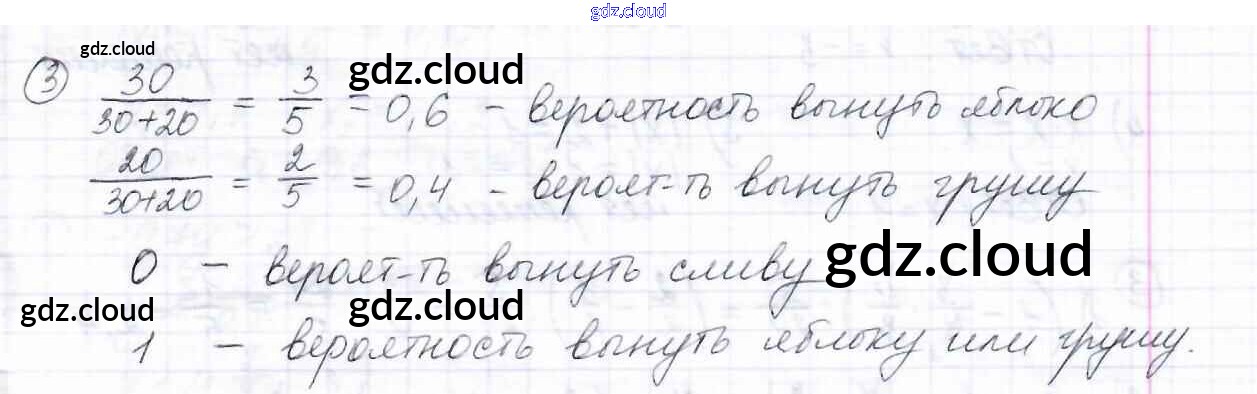 gdz.cloud
gdz.cloud
③ 30/(30+20) = 3/5 = 0,6 – вероятность вынуть яблоко
gdz.cloud
20/(30+20) = 2/5 = 0,4 – вероят-ть вынуть грушу
0 – вероят-ть вынуть сливу
gdz.cloud
gdz.cloud
gdz.cloud
1 – вероятность вынуть яблоку или грушу.